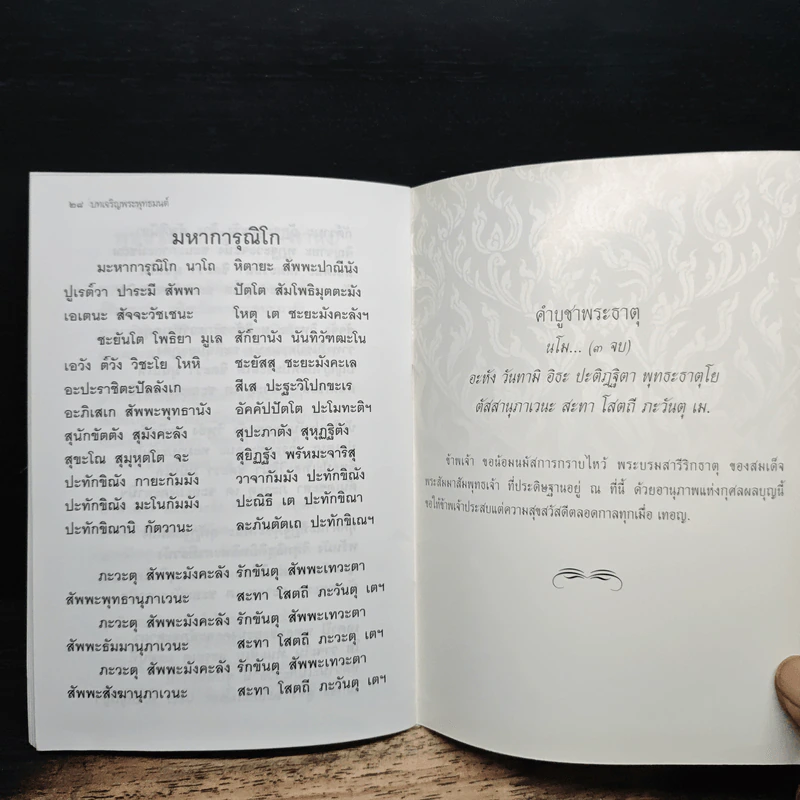 ๒๘ บทเจริญพระพุทธมนต์
มหาการุณิโก
มะหาการุณิโก นาโถ หิตายะ สัพพะปาณีนัง
ปูเรต์วา ปาระมี สัพพา ปัตโต สัมโพธิมุตตะมัง
เอเตนะ สัจจะวัชเชนะ โหตุ เต ชะยะมังคะลังฯ
ชะยันโต โพธิยา มูเล สักํยานัง นันทิวัฑฒะโน
เอวัง ต์วัง วิชะโย โหหิ ชะยัสสุ ชะยะมังคะเล
อะปะราชิตะปัลลังเก สีเส ปะฐะวิโปกขะเร
อะภิเสเก สัพพะพุทธานัง อัคคัปปัตโต ปะโมทะติฯ
สุนักขัตตัง สุมังคะลัง สุปะภาตัง สุหุฏฐิตัง
สุขะโณ สุมุหุตโต จะ สุยิฏฐัง พรัหมะจาริสุ
ปะทักขิณัง กายะกัมมัง วาจากัมมัง ปะทักขิณัง
ปะทักขิณัง มะโนกัมมัง ปะณิธี เต ปะทักขิณา
ปะทักขิณานิ กัตวานะ ละภันตัตเถ ปะทักขิเณฯ
ภะวะตุ สัพพะมังคะลัง รักขันตุ สัพพะเทวะตา
สัพพะพุทธานุภาเวนะ สะทา โสตถี ภะวันตุ เตฯ
ภะวะตุ สัพพะมังคะลัง รักขันตุ สัพพะเทวะตา
สัพพะธัมมานุภาเวนะ สะทา โสตถี ภะวะตุ เตฯ
ภะวะตุ สัพพะมังคะลัง รักขันตุ สัพพะเทวะตา
สัพพะสังฆานุภาเวนะ สะทา โสตถี ภะวันตุ เตฯ
คำบูชาพระธาตุ
นโม... (๓ จบ)
อะหัง วันทามิ อิธะ ปะติฏฐิตา พุทธะธาตุโย
ตัสสานุภาเวนะ สะทา โสตถี ภะวันตุ เม.
ข้าพเจ้า ขอน้อมนมัสการกราบไหว้ พระบรมสารีริกธาตุ ของสมเด็จ
พระสัมมาสัมพุทธเจ้า ที่ประดิษฐานอยู่ ณ ที่นี้ ด้วยอานุภาพแห่งกุศลผลบุญนี้
ขอให้ข้าพเจ้าประสบแต่ความสุขสวัสดีตลอดกาลทุกเมื่อ เทอญ.